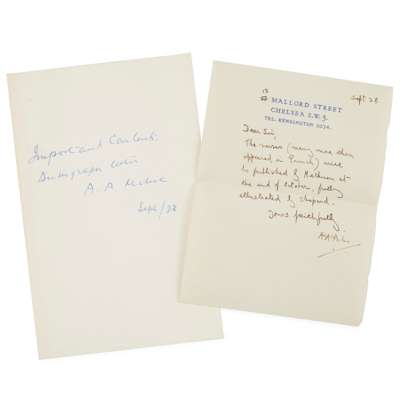 Important Contents.
Autograph letter
A. A Milne
Sept/28
Sept 28
13
MALLORD STREET
CHELSEA S.W.3.
TEL. KENSINGTON 2074.
Dear Sir,
The verses (many more than
appeared in Punch) will
be published by Methuen at
the end of October, fully
illustrated by Shepard.
Yours faithfully